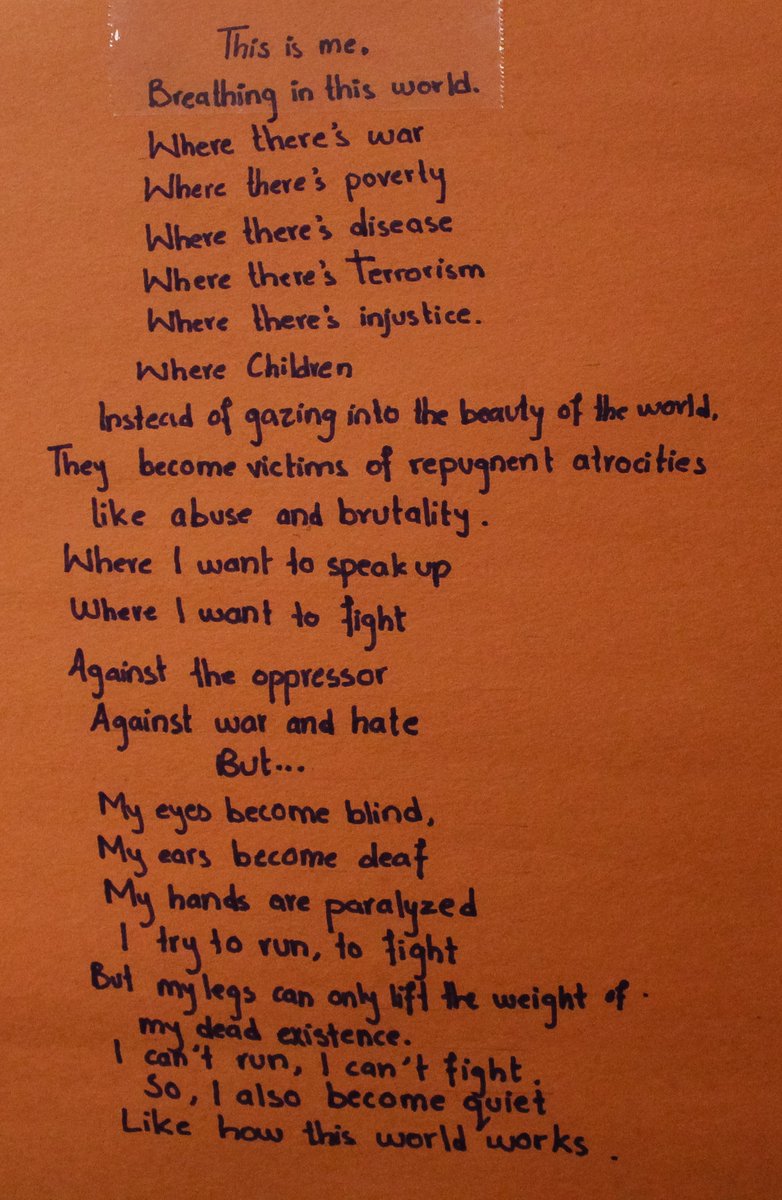 This is me.
Breathing in this world.
Where there's war
Where there's poverty
Where there's disease
Where there's Terrorism
Where there's injustice.
Where Children
Instead of gazing into the beauty of the world.
They become victims of repugnent atrocities
like abuse and brutality.
Where I want to speak up
Where I want to fight
Against the oppressor
Against war and hate
But...
My eyes become blind,
My ears become deaf
My hands are paralyzed
I try to run, to fight
But my legs can only lift the weight of.
my dead existence.
I can't run, I can't fight.
So, I also become quiet
Like how this world works.